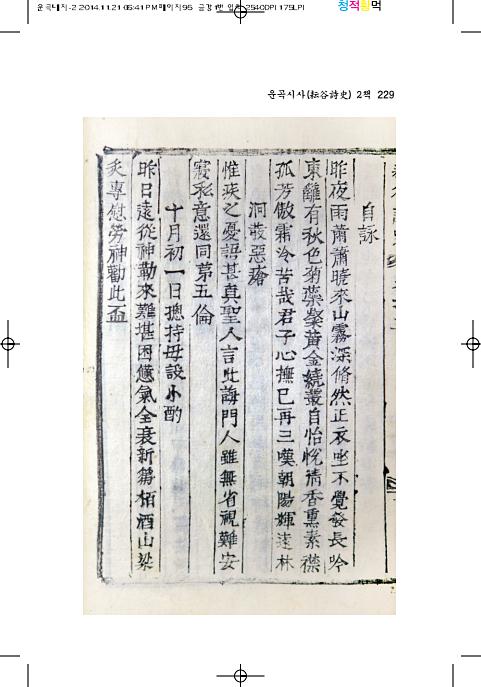 운곡대지-2 2014.11.21 05:41 PM 페이지95
2540DPI 175LPI
청적황먹
운곡시사(耘谷詩史) 2책 229
自詠
昨夜雨蕭蕭曉來山霧深脩然正衣坐不覺發長吟
東籬有秋色菊蘂粲黃金繞叢自怡悅淸香熏素襟
孤芳傲霜冷苦哉君子心撫已再三嘆朝陽輝遠林
洞敬惡瘡
惟疾之憂語甚真聖人言此誨門人雖無省視難安
寢私意還同第五倫
十月初一日摠持母設小酌
昨日遠從神勒來難堪困憊氣全衰新篘栢酒山梁
炙專慰勞神勸此盃